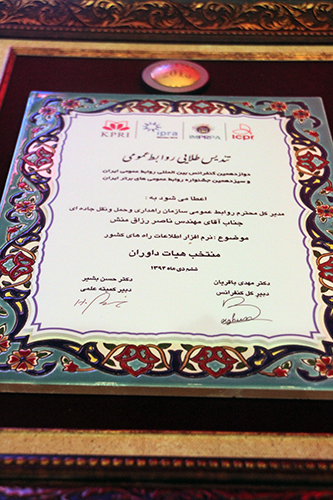 KPRI ipra IMPRPA icpr
تندیس طلایی روابط عمومی
دوازدهمین کنفرانس بین المللی روابط عمومی ایران
و سیزدهمین جشنواره روابط عمومی های برتر ایران
اعطا می شود به :
مدیر کل محترم روابط عمومی سازمان راهداری و حمل و نقل جاده ای
جناب آقای مهندس ناصر رزاق منش
موضوع : نرم افزار اطلاعات راه های کشور
منتخب هیات داوران
ششم دی ماه ۱۳۹۳
دکتر مهدی باقریان
دبیر کل کنفرانس
دکتر حسن بشیر
دبیر کمیته علمی